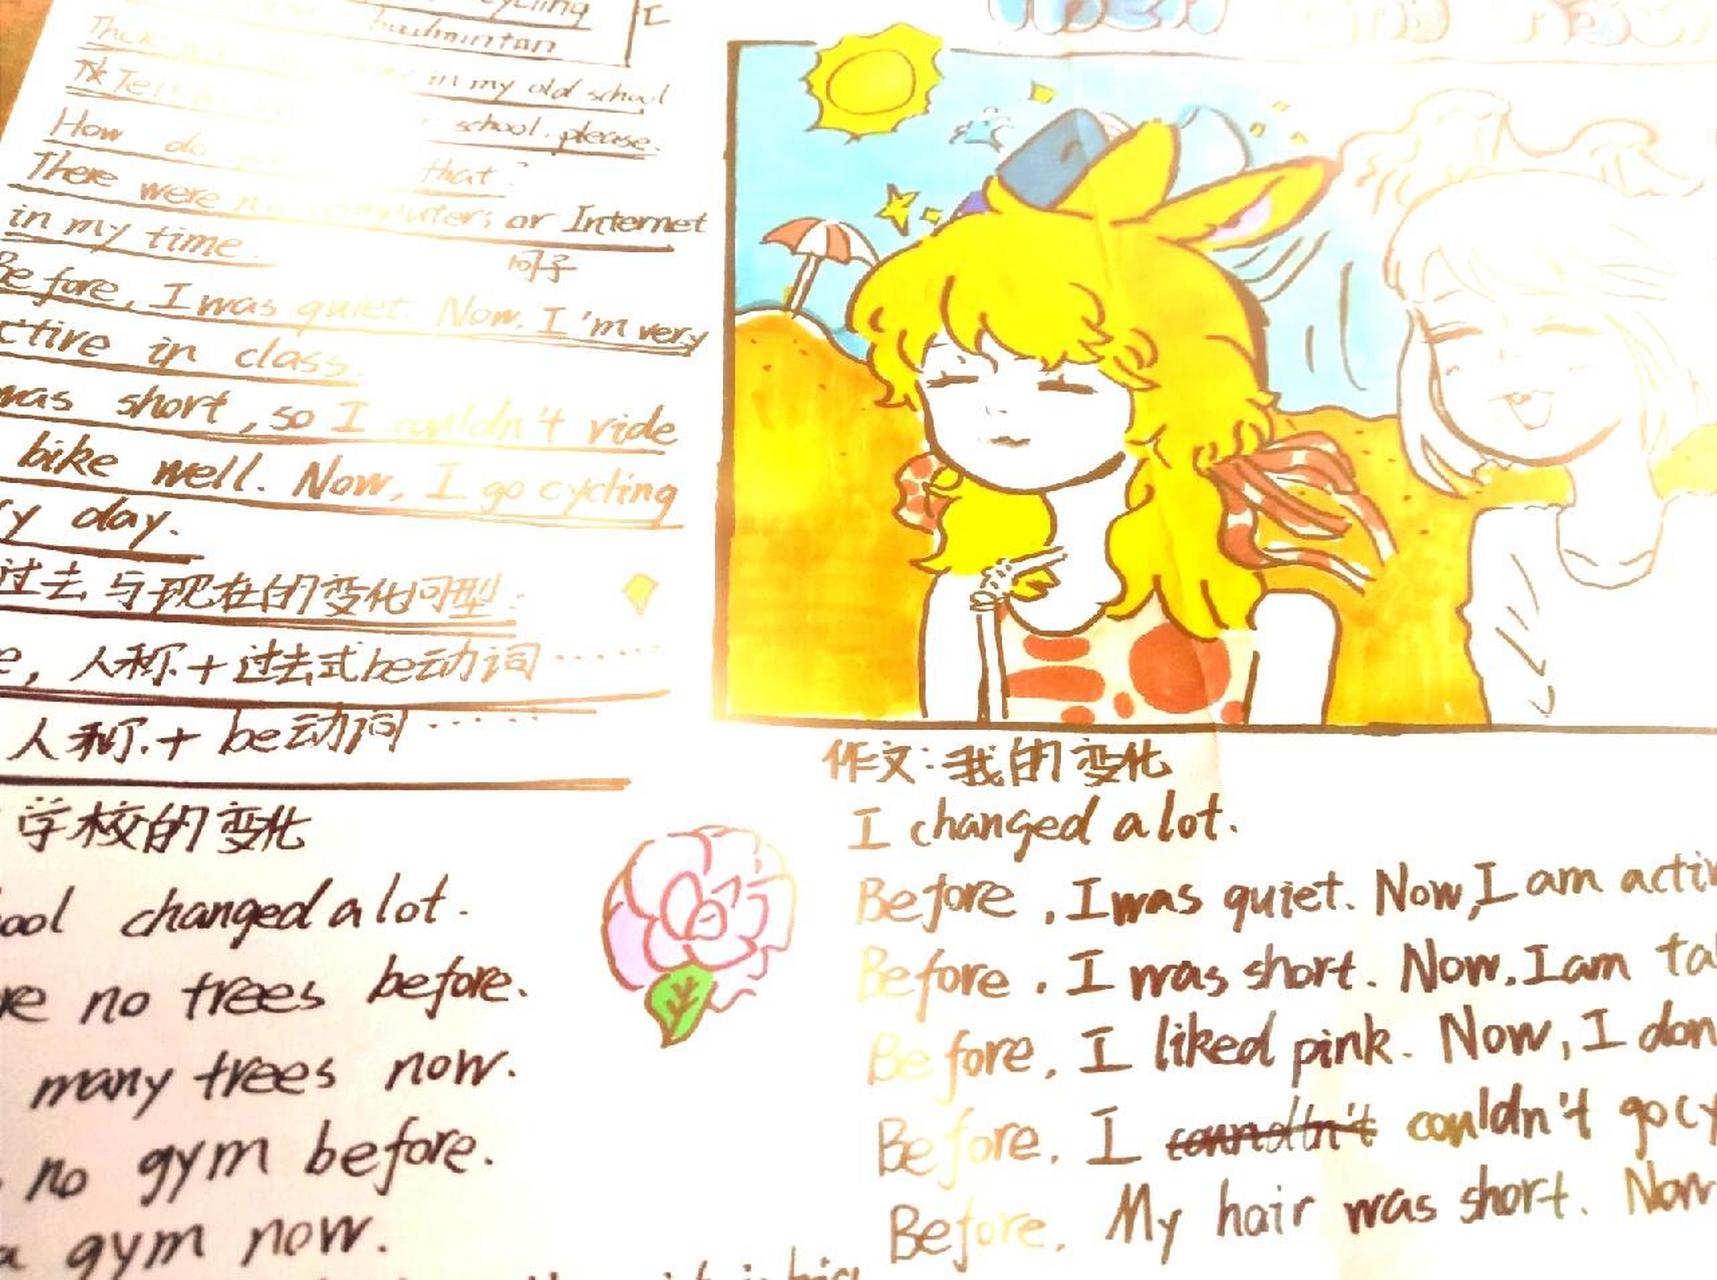 cycling
badminton
There in my old school
Tell school, please.
How do that?
There were no computers or Internet
in my time.
句子
Before, I was quiet. Now, I'm very
ctive in class.
was short, so I couldn't ride
bike well. Now, I go cycling
y day.
过去与现在的变化句型:
e, 人称.+过去式be动词······
人称.+ be动词······
学校的变化
ool changed a lot.
re no trees before.
many trees now.
no gym before.
a gym now.
作文:我的变化
I changed a lot.
Before, I was quiet. Now, I am activ
Before, I was short. Now, I am tal
Before, I liked pink. Now, I don
Before, I couldn't go cy
Before, My hair was short. Now